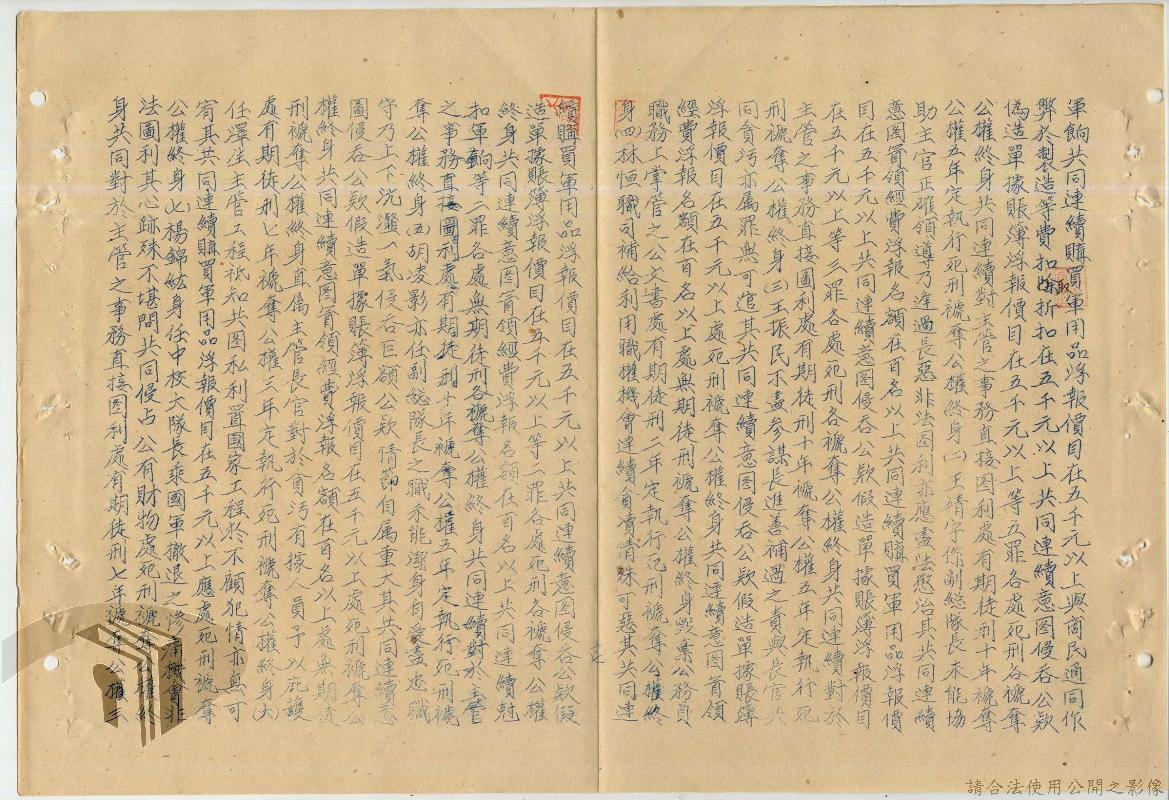 軍餉共同連續購買軍用品浮報價目在五千元以上與商民通同作
弊於製造等費扣取折扣在五千元以上共同連續意图侵吞公欵
偽造單據賬簿浮報價目在五千元以上等五罪各處死刑各褫奪
公權終身共同連續對主管之事務直接图利處有期徒刑十年褫奪
公權五年定執行死刑褫奪公權終身(二)王清字係副總隊長未能協
助主官正確領導乃逢過長惡非法图利亦應盡法懲治其共同連續
意图冐領經費浮報名額在百名以上共同連續購買軍用品浮報價
目在五千元以上共同連續意图侵吞公欵假造單據賬簿浮報價目
在五千元以上等三罪各處死刑各褫奪公權終身共同連續對於
主管之事務直接圖利處有期徒刑十年褫奪公權五年定執行死
刑褫奪公權終身(三)王振民不盡参謀長進善補過之責與長官共
同貪污亦属罪無可逭其共同連續意图侵吞公欵假造單據賬簿
浮報價目在五千元以上處死刑褫奪公權終身共同連續意图冐領
經費浮報名額在百名以上處無期徒刑褫奪公權終身毀棄公務員
職務上掌管之公文書處有期徒刑二年定執行死刑褫奪公權終
身(四)林恒職司補給利用職權機會連續貪瀆情殊可惡其共同連
續購買軍用品浮報價目在五千元以上共同連續意图侵吞公欵假
造單據賬簿浮報價目在五千元以上等二罪各處死刑各褫奪公權
終身共同連續意图冐領經費浮報名額在百名以上共同連續尅
扣軍餉等二罪各處無期徒刑各褫奪公權終身共同連續對於主管
之事務直接圖利處有期徒刑十年褫奪公權五年定執行死刑褫
奪公權終身(五)胡凌影亦任副總隊長之職未能潔身自愛盡忠職
守乃上下沆瀣一氣侵吞巨額公欵情節自属重大其共同連續意
圖侵吞公欵假造單據賬簿浮報價目在五千元以上處死刑褫奪公
權終身共同連續意图冐領經費浮報名額在百名以上處無期徒
刑褫奪公權終身直属主管長官對於貪污有據人員予以庇護
處有期徒刑七年褫奪公權三年定執行死刑褫奪公權終身(六)
任澤生主管工程祗知共图私利置國家工程於不顧犯情亦無可
宥其共同連續購買軍用品浮報價目在五千元以上應處死刑褫奪
公權終身(七)楊錦紘身任中校大隊長乘國軍撤退之際機會非
法圖利其心跡殊不堪問共同侵占公有財物處死刑褫奪公權終
身共同對於主管之事務直接图利處有期徒刑七年褫奪公權三
請合法使用公開之影像